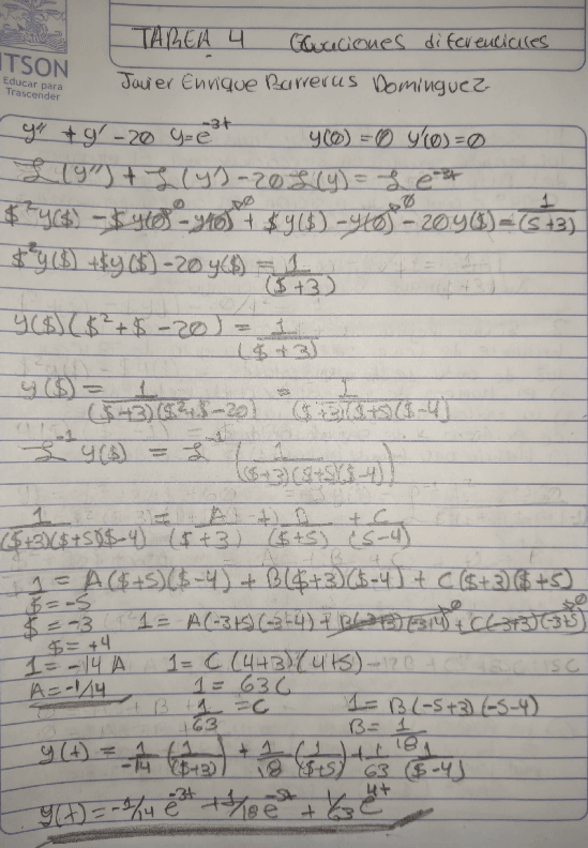 ITSON
Educar para
Trascender
TAREA 4 Ecuaciones diferenciales
Javier Enrique Barreras Dominguez
y'' + y' - 20 y = e^-3t y(0) = 0 y'(0) = 0
ℒ(y'') + ℒ(y') - 20ℒ(y) = ℒ e^-3t
$²y($) - $y(0) - y'(0) + $y($) - y(0) - 20y($) = 1/(s+3)
$²y($) + $y($) - 20 y($) = 1/($+3)
y($)($² + $ - 20) = 1/($+3)
y($) = 1/(($+3)($²+$-20)) = 1/(($+3)($+5)($-4))
ℒ^-1 y($) = ℒ^-1 (1/(($+3)($+5)($-4)))
1/(($+3)($+5)($-4)) = A/($+3) + B/($+5) + C/(s-4)
1 = A($+5)($-4) + B($+3)($-4) + C($+3)($+5)
$ = -5
$ = -3 1 = A(-3+5)(-3-4) + B(-3+3)(-3+4) + C(-3+3)(-3+5)
$ = +4
1 = -14 A 1 = C(4+3)(4+5)
A = -1/14 1 = 63C
1/63 = C 1 = B(-5+3)(-5-4)
B = 1/18
y(t) = 1/-14 (1/($+3)) + 1/18 (1/($+5)) + 1/63 1/($-4)
y(t) = -1/14 e^-3t + 1/18 e^-5t + 1/63 e^4t